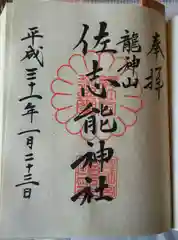 奉拝
龍神山
佐志能神社
平成三十一年一月二十三日